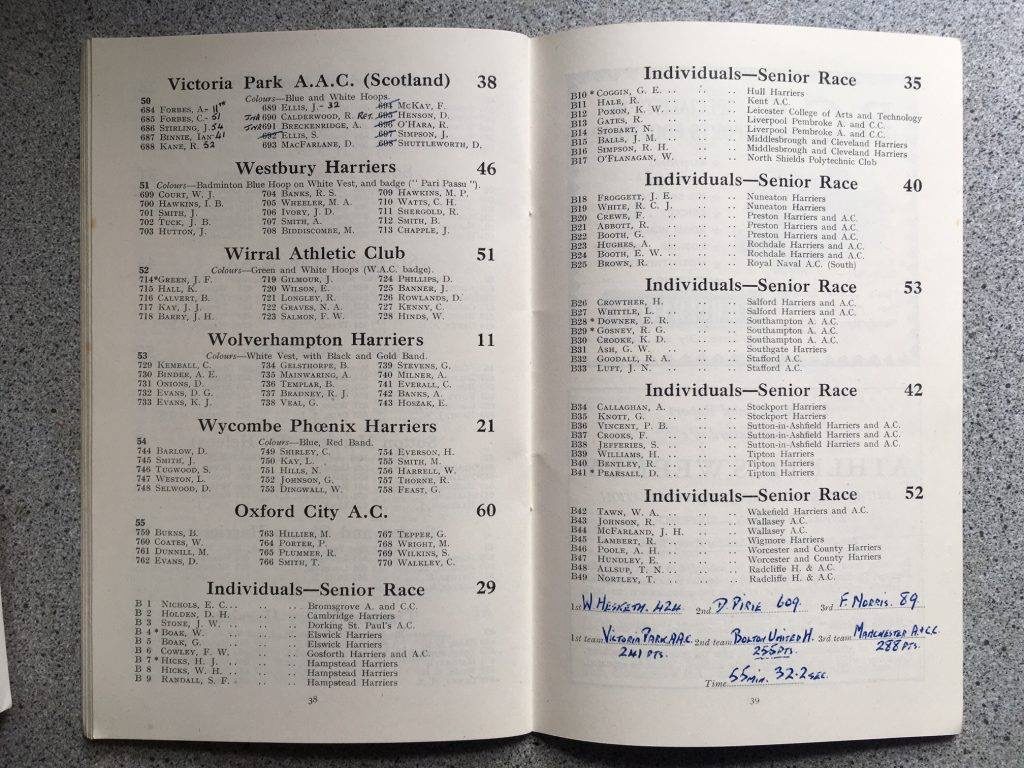 Victoria Park A.A.C. (Scotland) 38
50 Colours—Blue and White Hoops.
684 Forbes, A. 11th 689 Ellis, J.— 32 694 McKay, F.
685 Forbes, C.- 51 690 Calderwood, R. Ret. 695 Henson, D.
686 Stirling, J. 54 691 Breckenridge, A. 696 O'Hara, R.
687 Binnie, Ian 41 692 Ellis, S. 697 Simpson, J.
688 Kane, R. 52 693 MacFarlane, D. 698 Shuttleworth, D.
Westbury Harriers 46
51 Colours—Badminton Blue Hoop on White Vest, and badge (" Pari Passu ").
699 Court, W. J. 704 Banks, R. S. 709 Hawkins, M. P.
700 Hawkins, I. B. 705 Wheeler, M. A. 710 Watts, C. H.
701 Smith, J. 706 Ivory, J. D. 711 Shergold, R.
702 Tuck, J. B. 707 Smith, A. 712 Smith, B.
703 Hutton, J. 708 Biddiscombe, M. 713 Chapple, J.
Wirral Athletic Club 51
52 Colours—Green and White Hoops (W.A.C. badge).
714 *Green, J. F. 719 Gilmour, J. 724 Phillips, D.
715 Hall, K. 720 Wilson, E. 725 Banner, J.
716 Calvert, B. 721 Longley, R. 726 Rowlands, D.
717 Kay, J. J. 722 Graves, N. A. 727 Kenny, C.
718 Barry, J. H. 723 Salmon, F. W. 728 Hinds, W.
Wolverhampton Harriers 11
53 Colours—White Vest, with Black and Gold Band.
729 Kemball, C. 734 Gelsthorpe, B. 739 Stevens, G.
730 Binder, A. E. 735 Mainwaring, A. 740 Milner, A.
731 Onions, D. 736 Templar, B. 741 Everall, C.
732 Evans, D. G. 737 Bradney, R. J. 742 Banks, A.
733 Evans, K. J. 738 Veal, G. 743 Hoszak, E.
Wycombe Phœnix Harriers 21
54 Colours—Blue, Red Band.
744 Barlow, D. 749 Shirley, C. 754 Everson, H.
745 Smith, J. 750 Kay, L. 755 Smith, M.
746 Tugwood, S. 751 Hills, N. 756 Harrell, W.
747 Weston, L. 752 Johnson, G. 757 Thorne, R.
748 Selwood, D. 753 Dingwall, W. 758 Feast, G.
Oxford City A.C. 60
55
759 Burns, B. 763 Hillier, M. 767 Tepper, G.
760 Coates, W. 764 Porter, P. 768 Wright, M.
761 Dunnill, M. 765 Plummer, R. 769 Wilkins, S.
762 Evans, D. 766 Smith, T. 770 Walkley, C.
Individuals—Senior Race 29
B 1 Nichols, E. C. .. .. .. Bromsgrove A. and C.C.
B 2 Holden, D. H. .. .. Cambridge Harriers
B 3 Stone, J. W. .. .. .. Dorking St. Paul's A.C.
B 4 * Boak, W. .. .. Elswick Harriers
B 5 Boak, G. .. .. Elswick Harriers
B 6 Cowley, F. W. .. .. Gosforth Harriers and A.C.
B 7 * Hicks, H. J. .. .. Hampstead Harriers
B 8 Hicks, W. H. .. .. .. Hampstead Harriers
B 9 Randall, S. F. .. .. .. Hampstead Harriers
38
Individuals—Senior Race 35
B10 * Coggin, G. E. .. .. .. Hull Harriers
B11 Hale, R. .. .. Kent A.C.
B12 Poxon, K. W. .. .. .. Leicester College of Arts and Technology
B13 Gates, R. .. .. Liverpool Pembroke A. and C.C.
B14 Stobart, N. .. .. Liverpool Pembroke A. and C.C.
B15 Balls, J. M. .. .. Middlesbrough and Cleveland Harriers
B16 Simpson, R. H. .. .. Middlesbrough and Cleveland Harriers
B17 O'Flanagan, W. .. .. North Shields Polytechnic Club
Individuals—Senior Race 40
B18 Froggett, J. E. .. .. Nuneaton Harriers
B19 White, R. C. J. .. .. Nuneaton Harriers
B20 Crewe, F. .. .. Preston Harriers and A.C.
B21 Abbott, R. .. .. Preston Harriers and A.C.
B22 Booth, G. .. .. Preston Harriers and A.C.
B23 Hughes, A. .. .. Rochdale Harriers and A.C.
B24 Booth, E. W. .. .. .. Rochdale Harriers and A.C.
B25 Brown, R. .. .. Royal Naval A.C. (South)
Individuals—Senior Race 53
B26 Crowther, H. .. .. Salford Harriers and A.C.
B27 Whittle, L. .. .. .. Salford Harriers and A.C.
B28 * Downer, E. R. .. .. Southampton A. A.C.
B29 * Gosney, R. G. .. .. Southampton A. A.C.
B30 Crooke, K. D. .. .. Southampton A. A.C.
B31 Ash, G. W. .. .. .. Southgate Harriers
B32 Goodall, R. A. .. .. Stafford A.C.
B33 Luft, J. N. .. .. .. Stafford A.C.
Individuals—Senior Race 42
B34 Callaghan, A. .. .. Stockport Harriers
B35 Knott, G. .. .. .. Stockport Harriers
B36 Vincent, P. B. .. .. Sutton-in-Ashfield Harriers and A.C.
B37 Crooks, F. .. .. .. Sutton-in-Ashfield Harriers and A.C.
B38 Jefferies, S. .. .. .. Sutton-in-Ashfield Harriers and A.C.
B39 Williams, H. .. .. .. Tipton Harriers
B40 Bentley, R. .. .. .. Tipton Harriers
B41 * Pearsall, D. .. .. .. Tipton Harriers
Individuals—Senior Race 52
B42 Tawn, W. A. .. .. .. Wakefield Harriers and A.C.
B43 Johnson, R. .. .. .. Wallasey A.C.
B44 McFarland, J. H. .. .. Wallasey A.C.
B45 Lambert, R. .. .. .. Wigmore Harriers
B46 Poole, A. H. .. .. .. Worcester and County Harriers
B47 Hundley, E. .. .. Worcester and County Harriers
B48 Allsup, T. N. .. .. .. Radcliffe H. & A.C.
B49 Nortley, T. .. .. .. Radcliffe H. & A.C.
1st W Hesketh. 424 2nd D Pirie 609. 3rd F. Norris. 89
1st team Victoria Park A.A.C. 2nd team Bolton United H. 3rd team Manchester A & C.C.
241 pts. 255 pts. 288 pts.
Time 55 min. 32.2 sec.
39